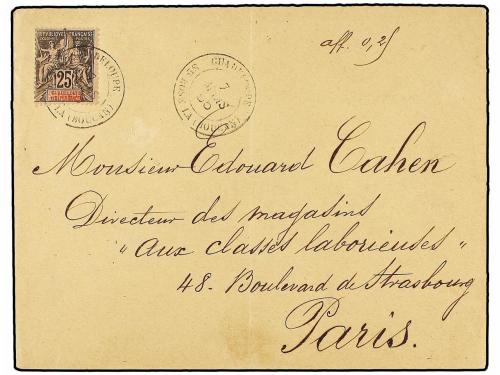 RÉPUBLIQUE FRANÇAISE
25
GUADELOUPE
LA (BOUCAN)
GUADELOUPE
7
LA (BOUCAN)
aff. 0,25
Monsieur Edouard Cahen
Directeur des magasins
"aux classes laborieuses"
48 - Boulevard de Strasbourg
Paris.